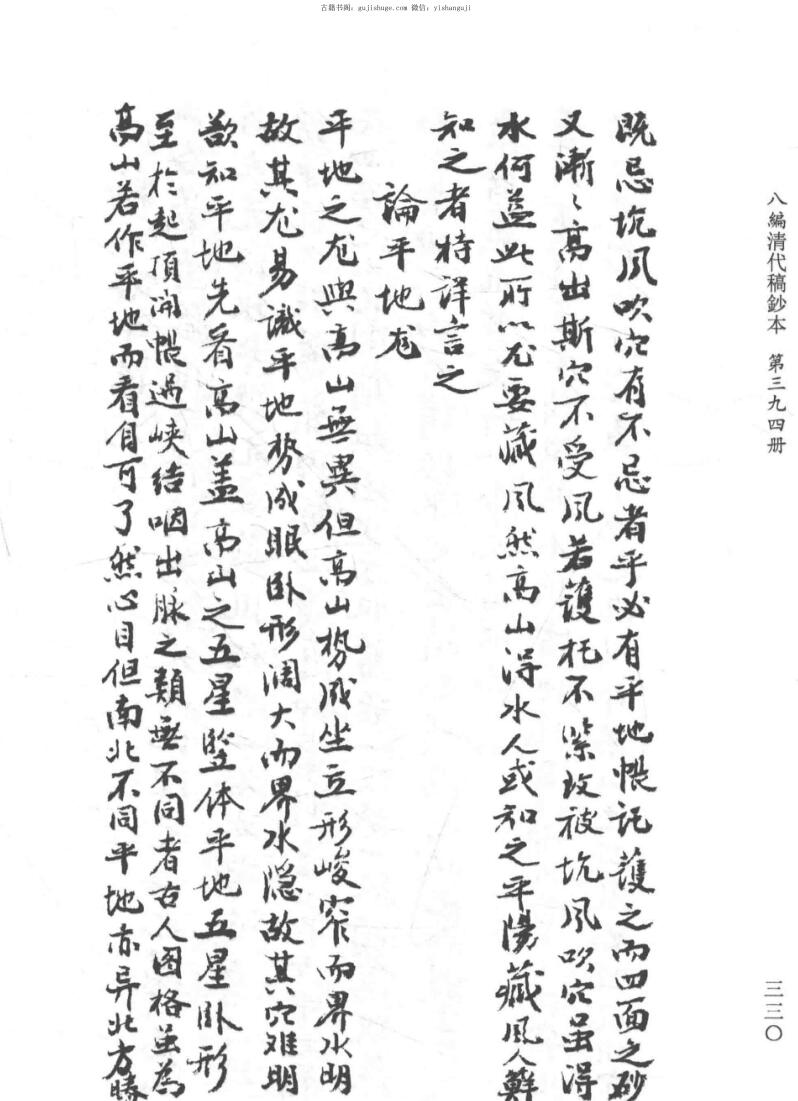 古籍书阁：gujishuge.com 微信：yishanguji
八編清代稿鈔本　第三九四册
三三〇
既忌坑风吹穴有不忌者乎必有平地帳托護之而四面之砂
又漸〻高出斯穴不受风若護托不緊致被坑风吹穴虽得
水何益此所以尤要藏风然高山得水人或知之平陽藏风人鮮
知之者特详言之
論平地龙
平地之龙與高山無異但高山势成坐立形峻窄而界水明
故其龙易識平地势成眠卧形濶大而界水隐故其穴难明
欲知平地先看高山盖高山之五星竪体平地五星卧形
至於起頂開帳過峡结咽出脉之類無不同者古人图格虽為
高山若作平地而看自可了然心目但南北不同平地亦异北方勝